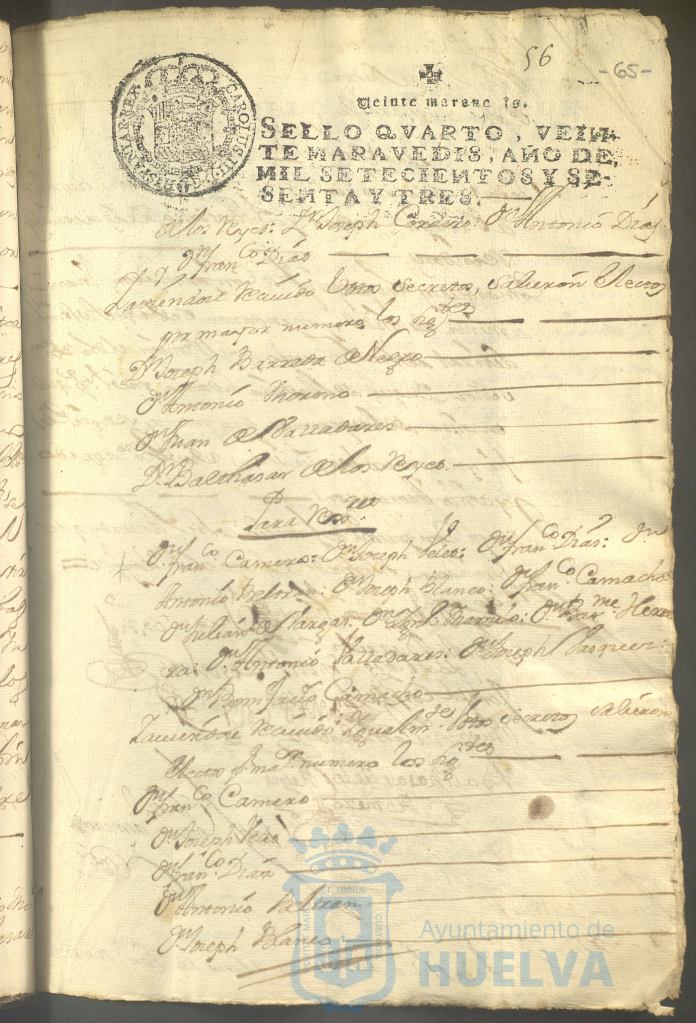 56
-65-
CAROLUS III D G HISPANIAR REX
Veinte maravedis.
SELLO QVARTO, VEIN-
TE MARAVEDIS, AÑO DE
MIL SETECIENTOS Y SE-
SENTA Y TRES.
de los Reyes: Dn Joseph Cordero: Dn Antonio Dias
y Dn Franco Dias
Haviendose recivido votos secretos, salieron electos
por mayor numero los sigtes
Dn Joseph Barreda de Negro
Dn Antonio Moreno
Dn Juan de Valladares
Dn Balthasar de los Reyes
Para
Dn Franco Camero: Dn Joseph Dn Franco Dias: Dn
Antonio Beltran: Dn Joseph Blanco: Dn Franco Camacho
Dn Julian de Vargas: Dn Dn Barme Herre
ra: Dn Antonio Valladares: Dn Joseph Vasquez:
Dn Bonifacio Camacho
Haviendose recivido igualmte votos secretos salieron
electos pr mar numero los sigtes
Dn Franco Camero
Dn Joseph
Dn Franco Dias
Dn Antonio Beltran
Dn Joseph Blanco
Ayuntamiento de
HUELVA